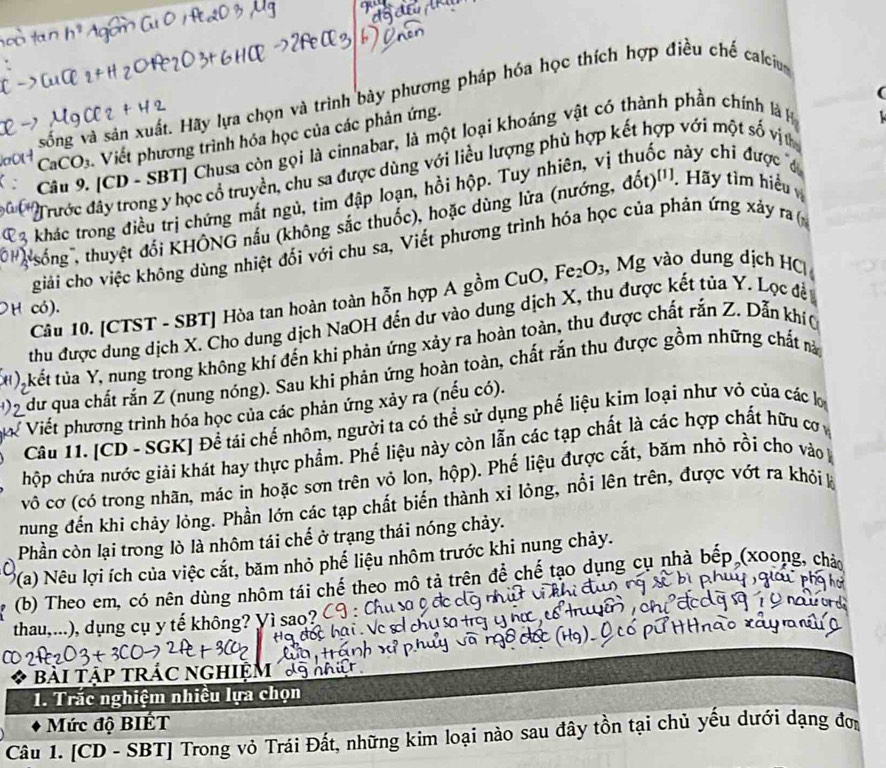 hoà tan hh Agồm CuO, Fe2O3, Mg
dg đều
→ CuCl2+H2O Fe2O3+6HCl → 2FeCl3 b) O nên
→ MgCl2 + H2
sống và sản xuất. Hãy lựa chọn và trình bày phương pháp hóa học thích hợp điều chế calcium
CaCO₃. Viết phương trình hóa học của các phản ứng.
Câu 9. [CD - SBT] Chusa còn gọi là cinnabar, là một loại khoáng vật có thành phần chính là
Trước đây trong y học cổ truyền, chu sa được dùng với liều lượng phù hợp kết hợp với một số vị
khác trong điều trị chứng mất ngủ, tim đập loạn, hồi hộp. Tuy nhiên, vị thuốc này chỉ được
sống", thuyệt đối KHÔNG nấu (không sắc thuốc), hoặc dùng lửa (nướng, đốt)[1]. Hãy tìm hiểu
giải cho việc không dùng nhiệt đối với chu sa, Viết phương trình hóa học của phản ứng xảy ra
có).
Câu 10. [CTST - SBT] Hòa tan hoàn toàn hỗn hợp A gồm CuO, Fe₂O₃, Mg vào dung dịch HCl
thu được dung dịch X. Cho dung dịch NaOH đến dư vào dung dịch X, thu được kết tủa Y. Lọc
kết tủa Y, nung trong không khí đến khi phản ứng xảy ra hoàn toàn, thu được chất rắn Z. Dẫn khí
dư qua chất rắn Z (nung nóng). Sau khi phản ứng hoàn toàn, chất rắn thu được gồm những chất
Viết phương trình hóa học của các phản ứng xảy ra (nếu có).
Câu 11. [CD - SGK] Để tái chế nhôm, người ta có thể sử dụng phế liệu kim loại như vỏ của các
hộp chứa nước giải khát hay thực phẩm. Phế liệu này còn lẫn các tạp chất là các hợp chất hữu cơ
vô cơ (có trong nhãn, mác in hoặc sơn trên vỏ lon, hộp). Phế liệu được cắt, băm nhỏ rồi cho vào
nung đến khi chảy lỏng. Phần lớn các tạp chất biến thành xỉ lỏng, nổi lên trên, được vớt ra khỏi
Phần còn lại trong lò là nhôm tái chế ở trạng thái nóng chảy.
(a) Nêu lợi ích của việc cắt, băm nhỏ phế liệu nhôm trước khi nung chảy.
(b) Theo em, có nên dùng nhôm tái chế theo mô tả trên để chế tạo dụng cụ nhà bếp (xoong, chảo
thau,...), dụng cụ y tế không? Vì sao? C9: Chu sa
Hg độc hại. chu sa
2Fe2O3+3CO→2Fe+3CO2 lửa, tránh phủy và ngộ độc (Hg).
❖ BÀI TẬP TRẮC NGHIỆM dg nhiệt.
1. Trắc nghiệm nhiều lựa chọn
♦ Mức độ BIẾT
Câu 1. [CD - SBT] Trong vỏ Trái Đất, những kim loại nào sau đây tồn tại chủ yếu dưới dạng đơn